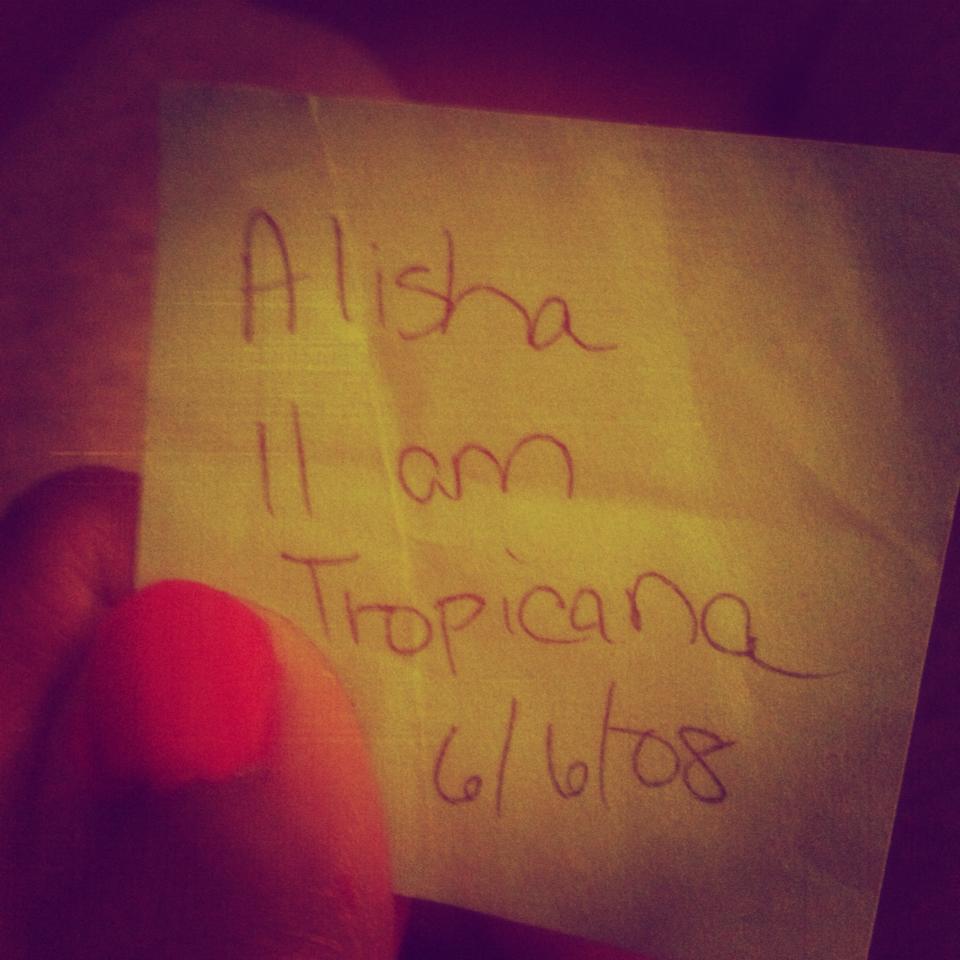 Alisha
11 am
Tropicana
6/6/08